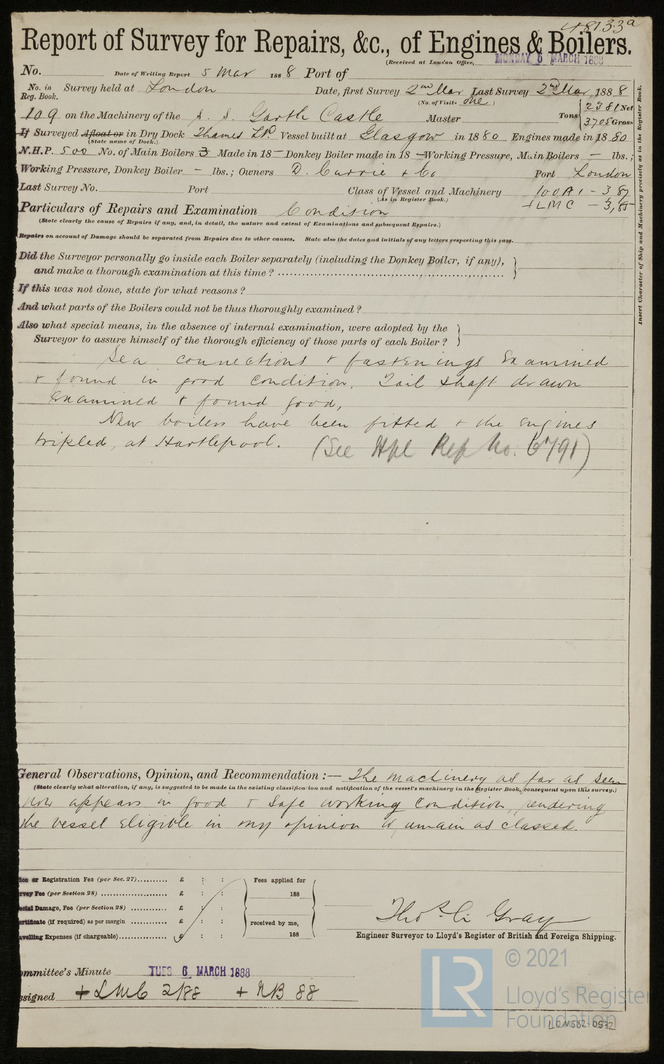 48133a
Report of Survey for Repairs, &c., of Engines & Boilers.
(Received at London Office, MONDAY 5 MARCH 1888
No. Date of Writing Report 5 Mar 1888 Port of
No. in Reg. Book. Survey held at London Date, first Survey 2nd Mar Last Survey 2nd Mar 1888
(No. of Visits one)
109 on the Machinery of the S. S. Garth Castle Master Tons 2381 Net
3705 Gross
If Surveyed Afloat or in Dry Dock Thames Vessel built at Glasgow in 1880 Engines made in 1880
(State name of Dock.)
N.H.P. 500 No. of Main Boilers 3 Made in 18 — Donkey Boiler made in 18 — Working Pressure, Main Boilers — lbs.;
Working Pressure, Donkey Boiler — lbs.; Owners D. Currie & Co Port London
Last Survey No. Port Class of Vessel and Machinery 100A1 - 3,87
(As in Register Book.) +LMC - 3,85
Particulars of Repairs and Examination Condition
(State clearly the cause of Repairs if any, and, in detail, the nature and extent of Examinations and subsequent Repairs.)
Repairs on account of Damage should be separated from Repairs due to other causes. State also the dates and initials of any letters respecting this case.
Did the Surveyor personally go inside each Boiler separately (including the Donkey Boiler, if any),
and make a thorough examination at this time?
If this was not done, state for what reasons?
And what parts of the Boilers could not be thus thoroughly examined?
Also what special means, in the absence of internal examination, were adopted by the
Surveyor to assure himself of the thorough efficiency of those parts of each Boiler?
Insert Character of Ship and Machinery precisely as in the Register Book.
Sea connections & fastenings examined
& found in good condition. Tail shaft drawn
examined & found good,
New boilers have been fitted & the engines
tripled, at Hartlepool. (See Hpl Rep No. 6791)
General Observations, Opinion, and Recommendation:— The machinery as far as seen
(State clearly what alteration, if any, is suggested to be made in the existing classification and notification of the vessel's machinery in the Register Book, consequent upon this survey.)
now appears in good & safe working condition, rendering
the vessel eligible in my opinion to remain as classed.
ion or Registration Fee (per Sec. 27) £ : : Fees applied for
rvey Fee (per Section 28) £ : : 188
ecial Damage, Fee (per Section 28) £ : :
ertificate (if required) as per margin £ : : received by me,
avelling Expenses (if chargeable) £ : : 188
Thos. C. Gray
Engineer Surveyor to Lloyd's Register of British and Foreign Shipping.
ommittee's Minute TUES 6 MARCH 1888
signed + LMC 2/88 + NB 88
© 2021
LR
Lloyd's Register
Foundation